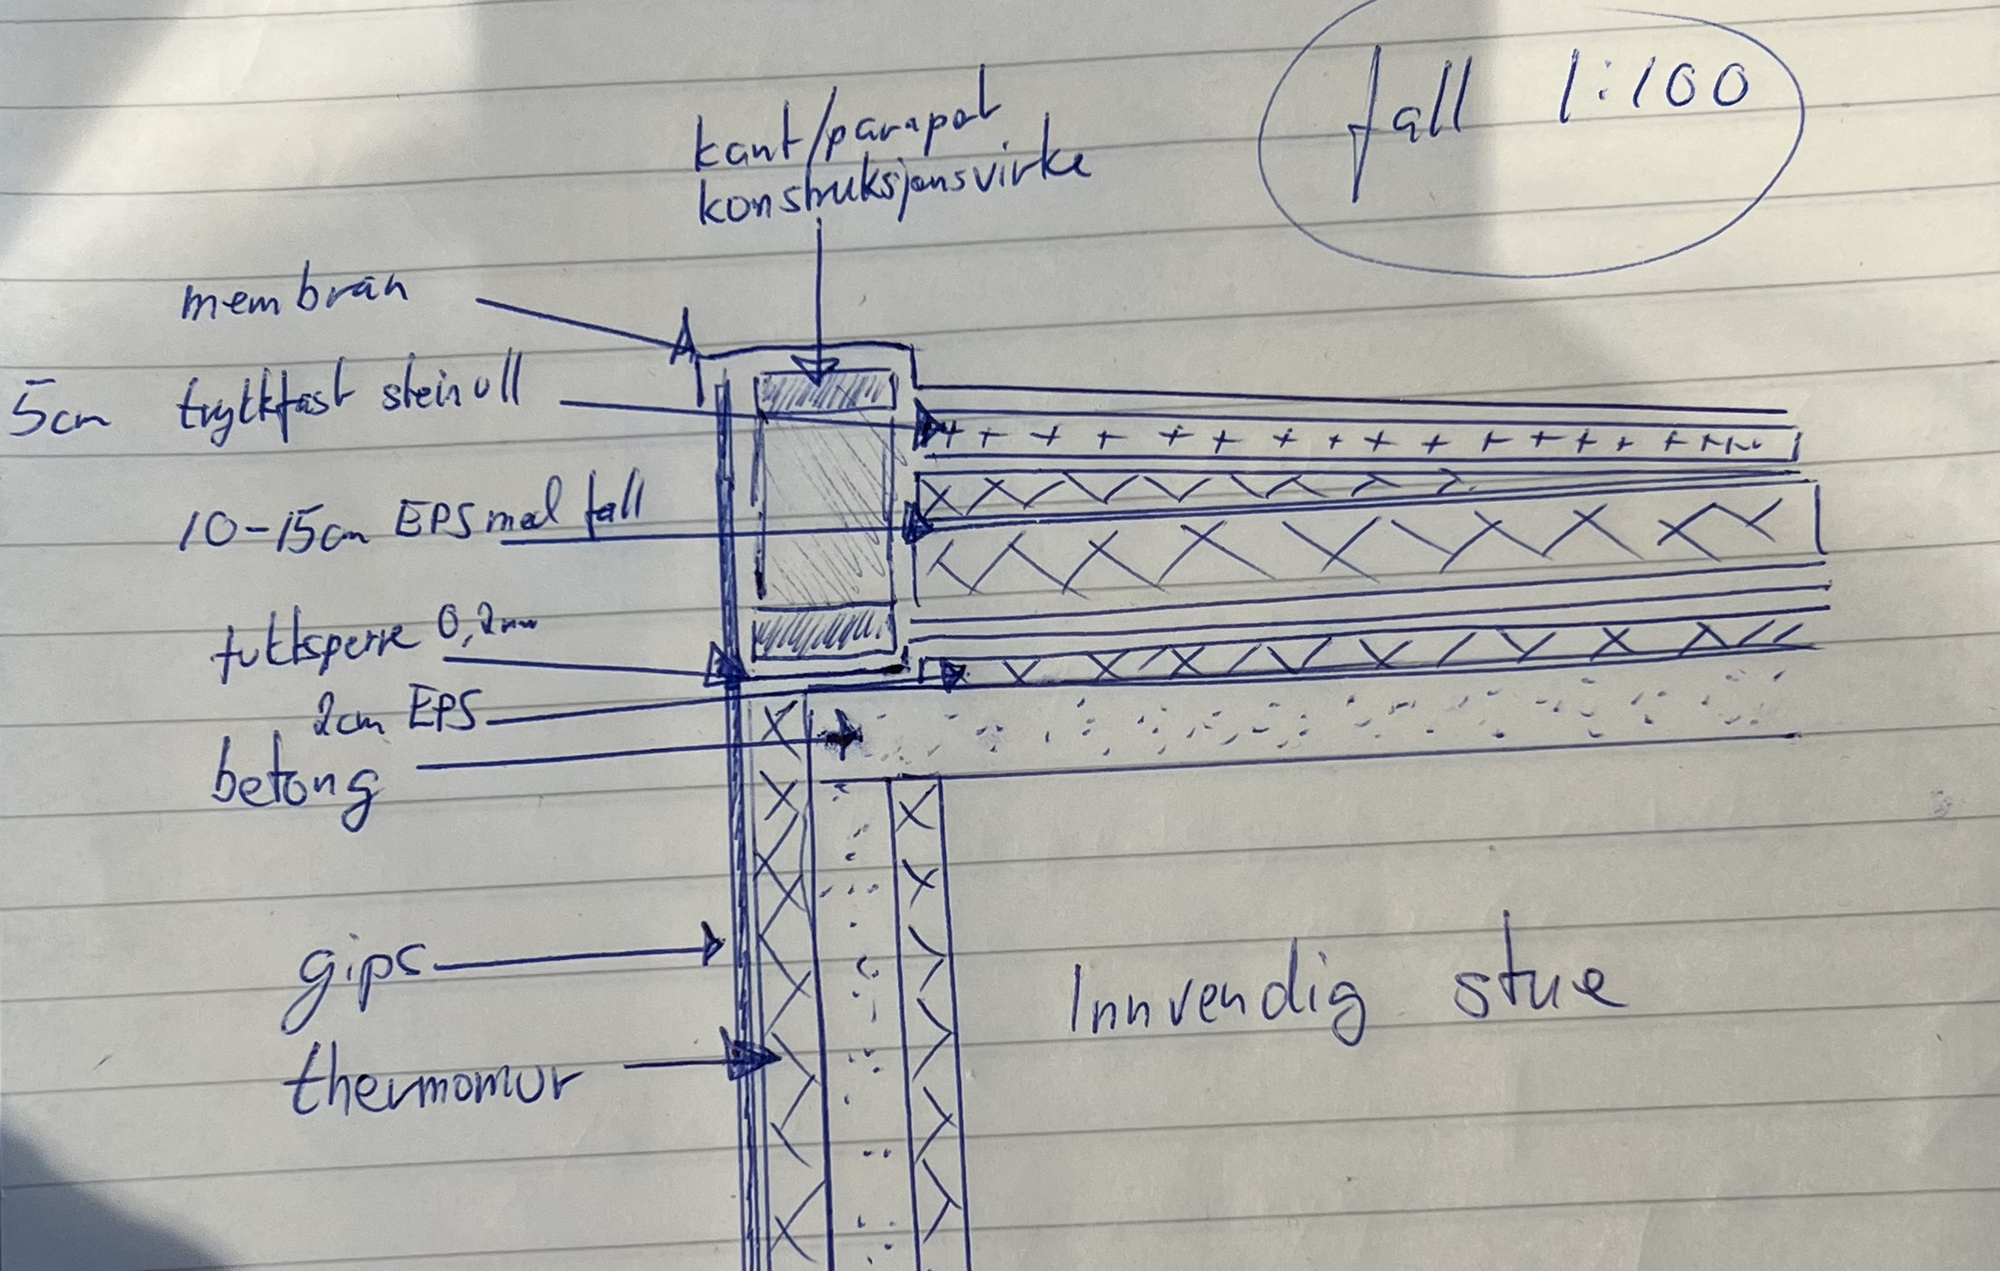 fall 1:100
kant/parapet
konstruksjonsvirke
membran
5cm trykkfast steinull
10-15cm EPS med fall
fuktsperre 0,2mm
2cm EPS
betong
gips
thermomur
Innvendig stue